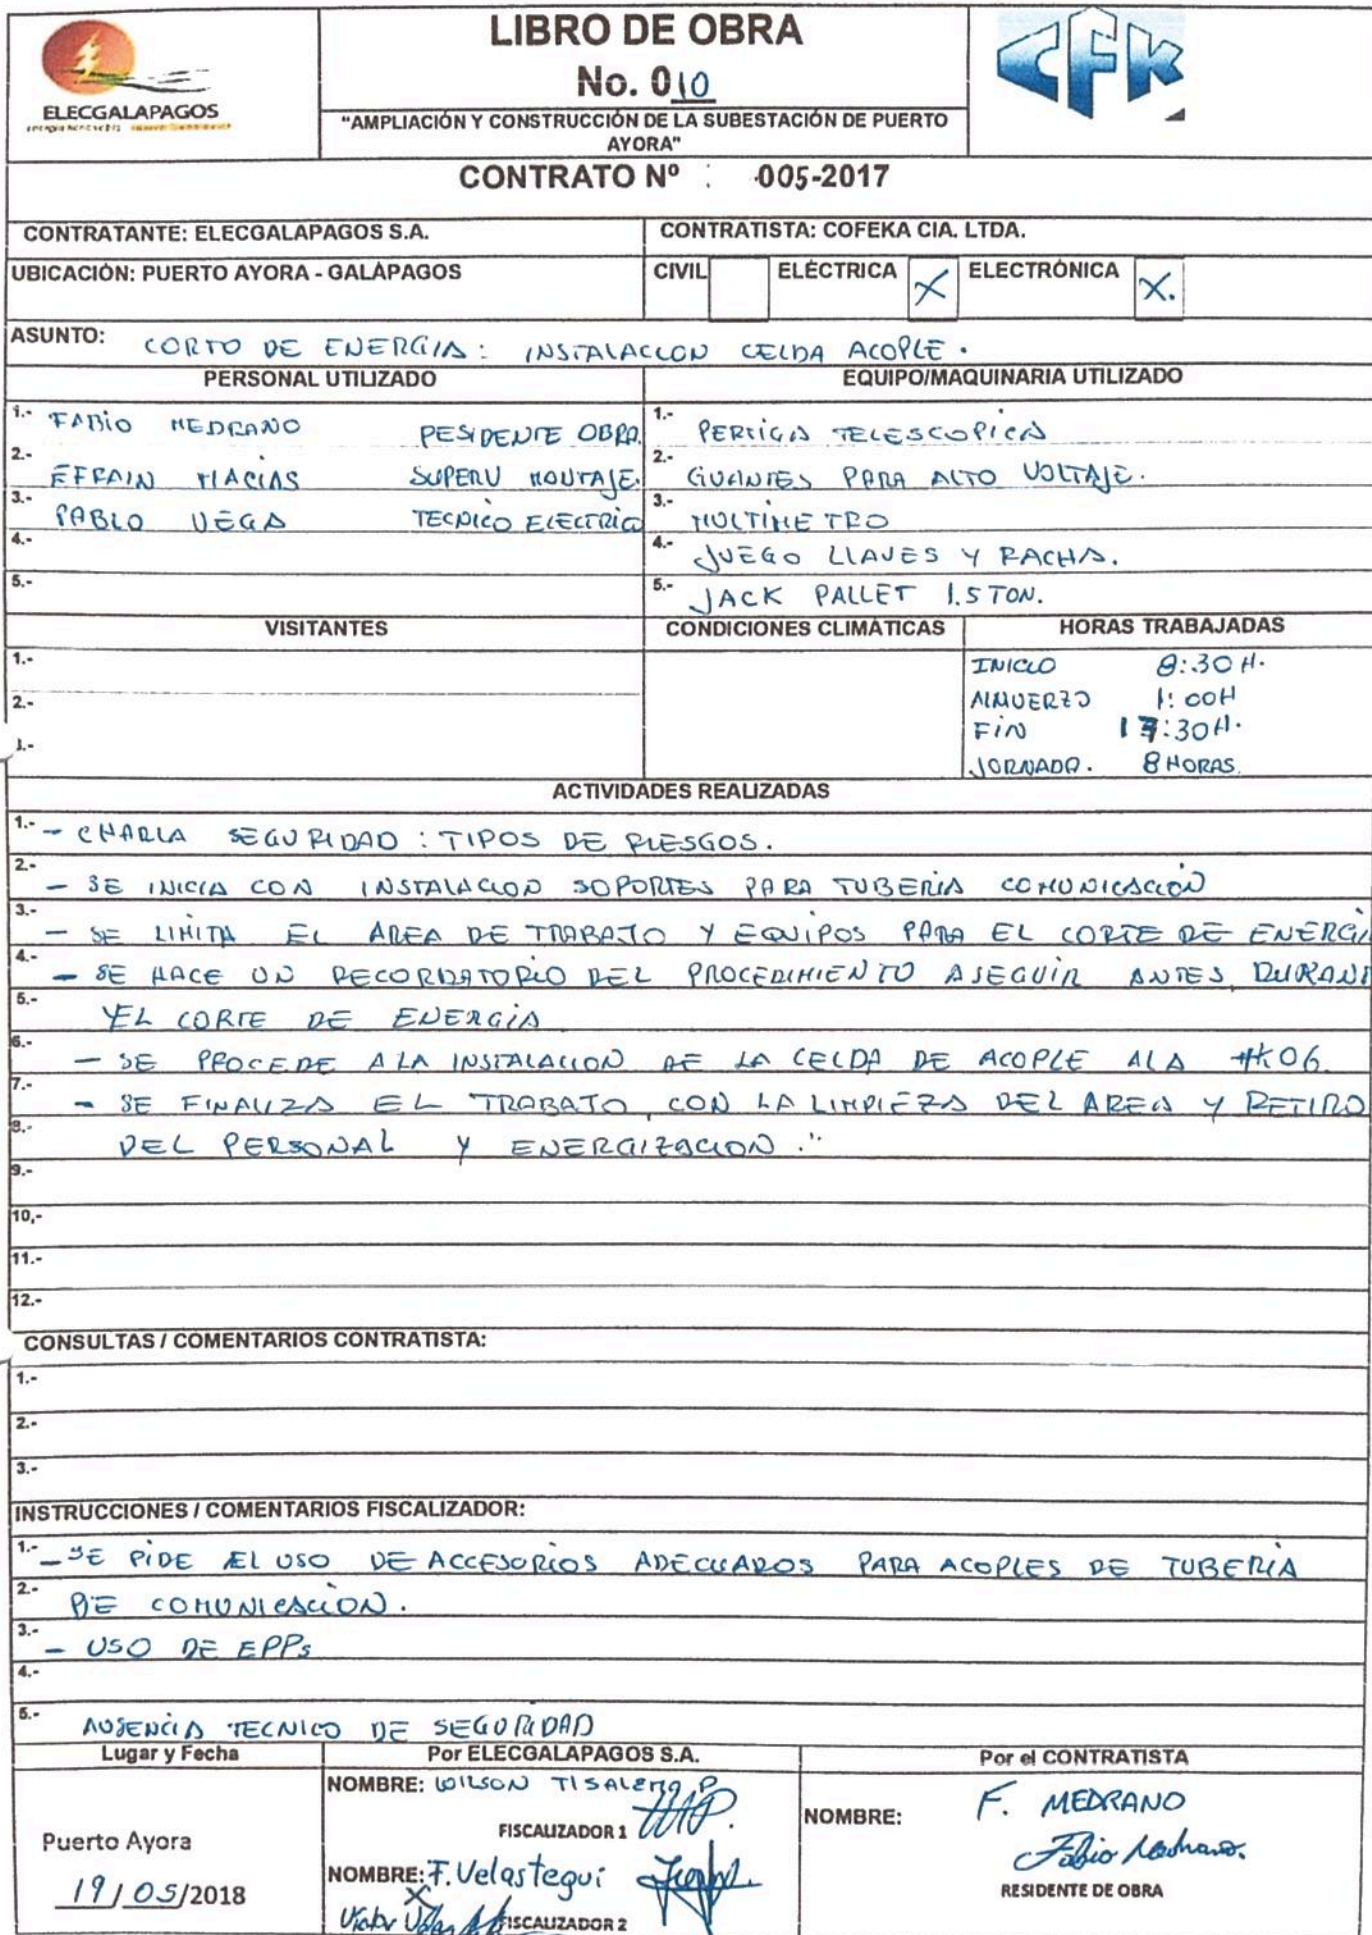 ELECGALAPAGOS
LIBRO DE OBRA
No. 010
"AMPLIACIÓN Y CONSTRUCCIÓN DE LA SUBESTACIÓN DE PUERTO
AYORA"
CFK
CONTRATO Nº : 005-2017
CONTRATANTE: ELECGALAPAGOS S.A.
CONTRATISTA: COFEKA CIA. LTDA.
UBICACIÓN: PUERTO AYORA - GALÁPAGOS
CIVIL ELÉCTRICA X ELECTRÓNICA X.
ASUNTO: CORTO DE ENERGIA: INSTALACCION CELDA ACOPLE.
PERSONAL UTILIZADO
EQUIPO/MAQUINARIA UTILIZADO
1.- FABIO MEDRANO RESIDENTE OBRA.
2.- EFRAIN MACIAS SUPERV MONTAJE.
3.- PABLO VEGA TECNICO ELECTRICO
4.-
5.-
1.- PERTIGA TELESCOPICA
2.- GUANTES PARA ALTO VOLTAJE.
3.- MULTIMETRO
4.- JUEGO LLAVES Y RACHA.
5.- JACK PALLET 1.5 TON.
VISITANTES
CONDICIONES CLIMÁTICAS
HORAS TRABAJADAS
1.-
2.-
3.-
INICIO 8:30 H.
ALMUERZO 1:00H
FIN 17:30H.
JORNADA. 8 HORAS.
ACTIVIDADES REALIZADAS
1.- - CHARLA SEGURIDAD : TIPOS DE RIESGOS.
2.- - SE INICIA CON INSTALACION SOPORTES PARA TUBERIA COMUNICACIÓN
3.- - SE LIMITA EL AREA DE TRABAJO Y EQUIPOS PARA EL CORTE DE ENERGIA
4.- - SE HACE UN RECORDATORIO DEL PROCEDIMIENTO A SEGUIR ANTES, DURANT
5.- Y EL CORTE DE ENERGIA
6.- - SE PROCEDE A LA INSTALACION DE LA CELDA DE ACOPLE A LA #K06.
7.- - SE FINALIZA EL TRABAJO, CON LA LIMPIEZA DEL AREA Y RETIRO
8.- DEL PERSONAL Y ENERGIZACION.
9.-
10,-
11.-
12.-
CONSULTAS / COMENTARIOS CONTRATISTA:
1.-
2.-
3.-
INSTRUCCIONES / COMENTARIOS FISCALIZADOR:
1.- - SE PIDE EL USO DE ACCESORIOS ADECUADOS PARA ACOPLES DE TUBERIA
2.- DE COMUNICACION.
3.- - USO DE EPPs
4.-
5.- AUSENCIA TECNICO DE SEGURIDAD
Lugar y Fecha
Por ELECGALAPAGOS S.A.
Por el CONTRATISTA
Puerto Ayora
19/05/2018
NOMBRE: WILSON TISALEMA P.
FISCALIZADOR 1
NOMBRE: F. Velastegui
FISCALIZADOR 2
NOMBRE: F. MEDRANO
Fabio Medrano.
RESIDENTE DE OBRA